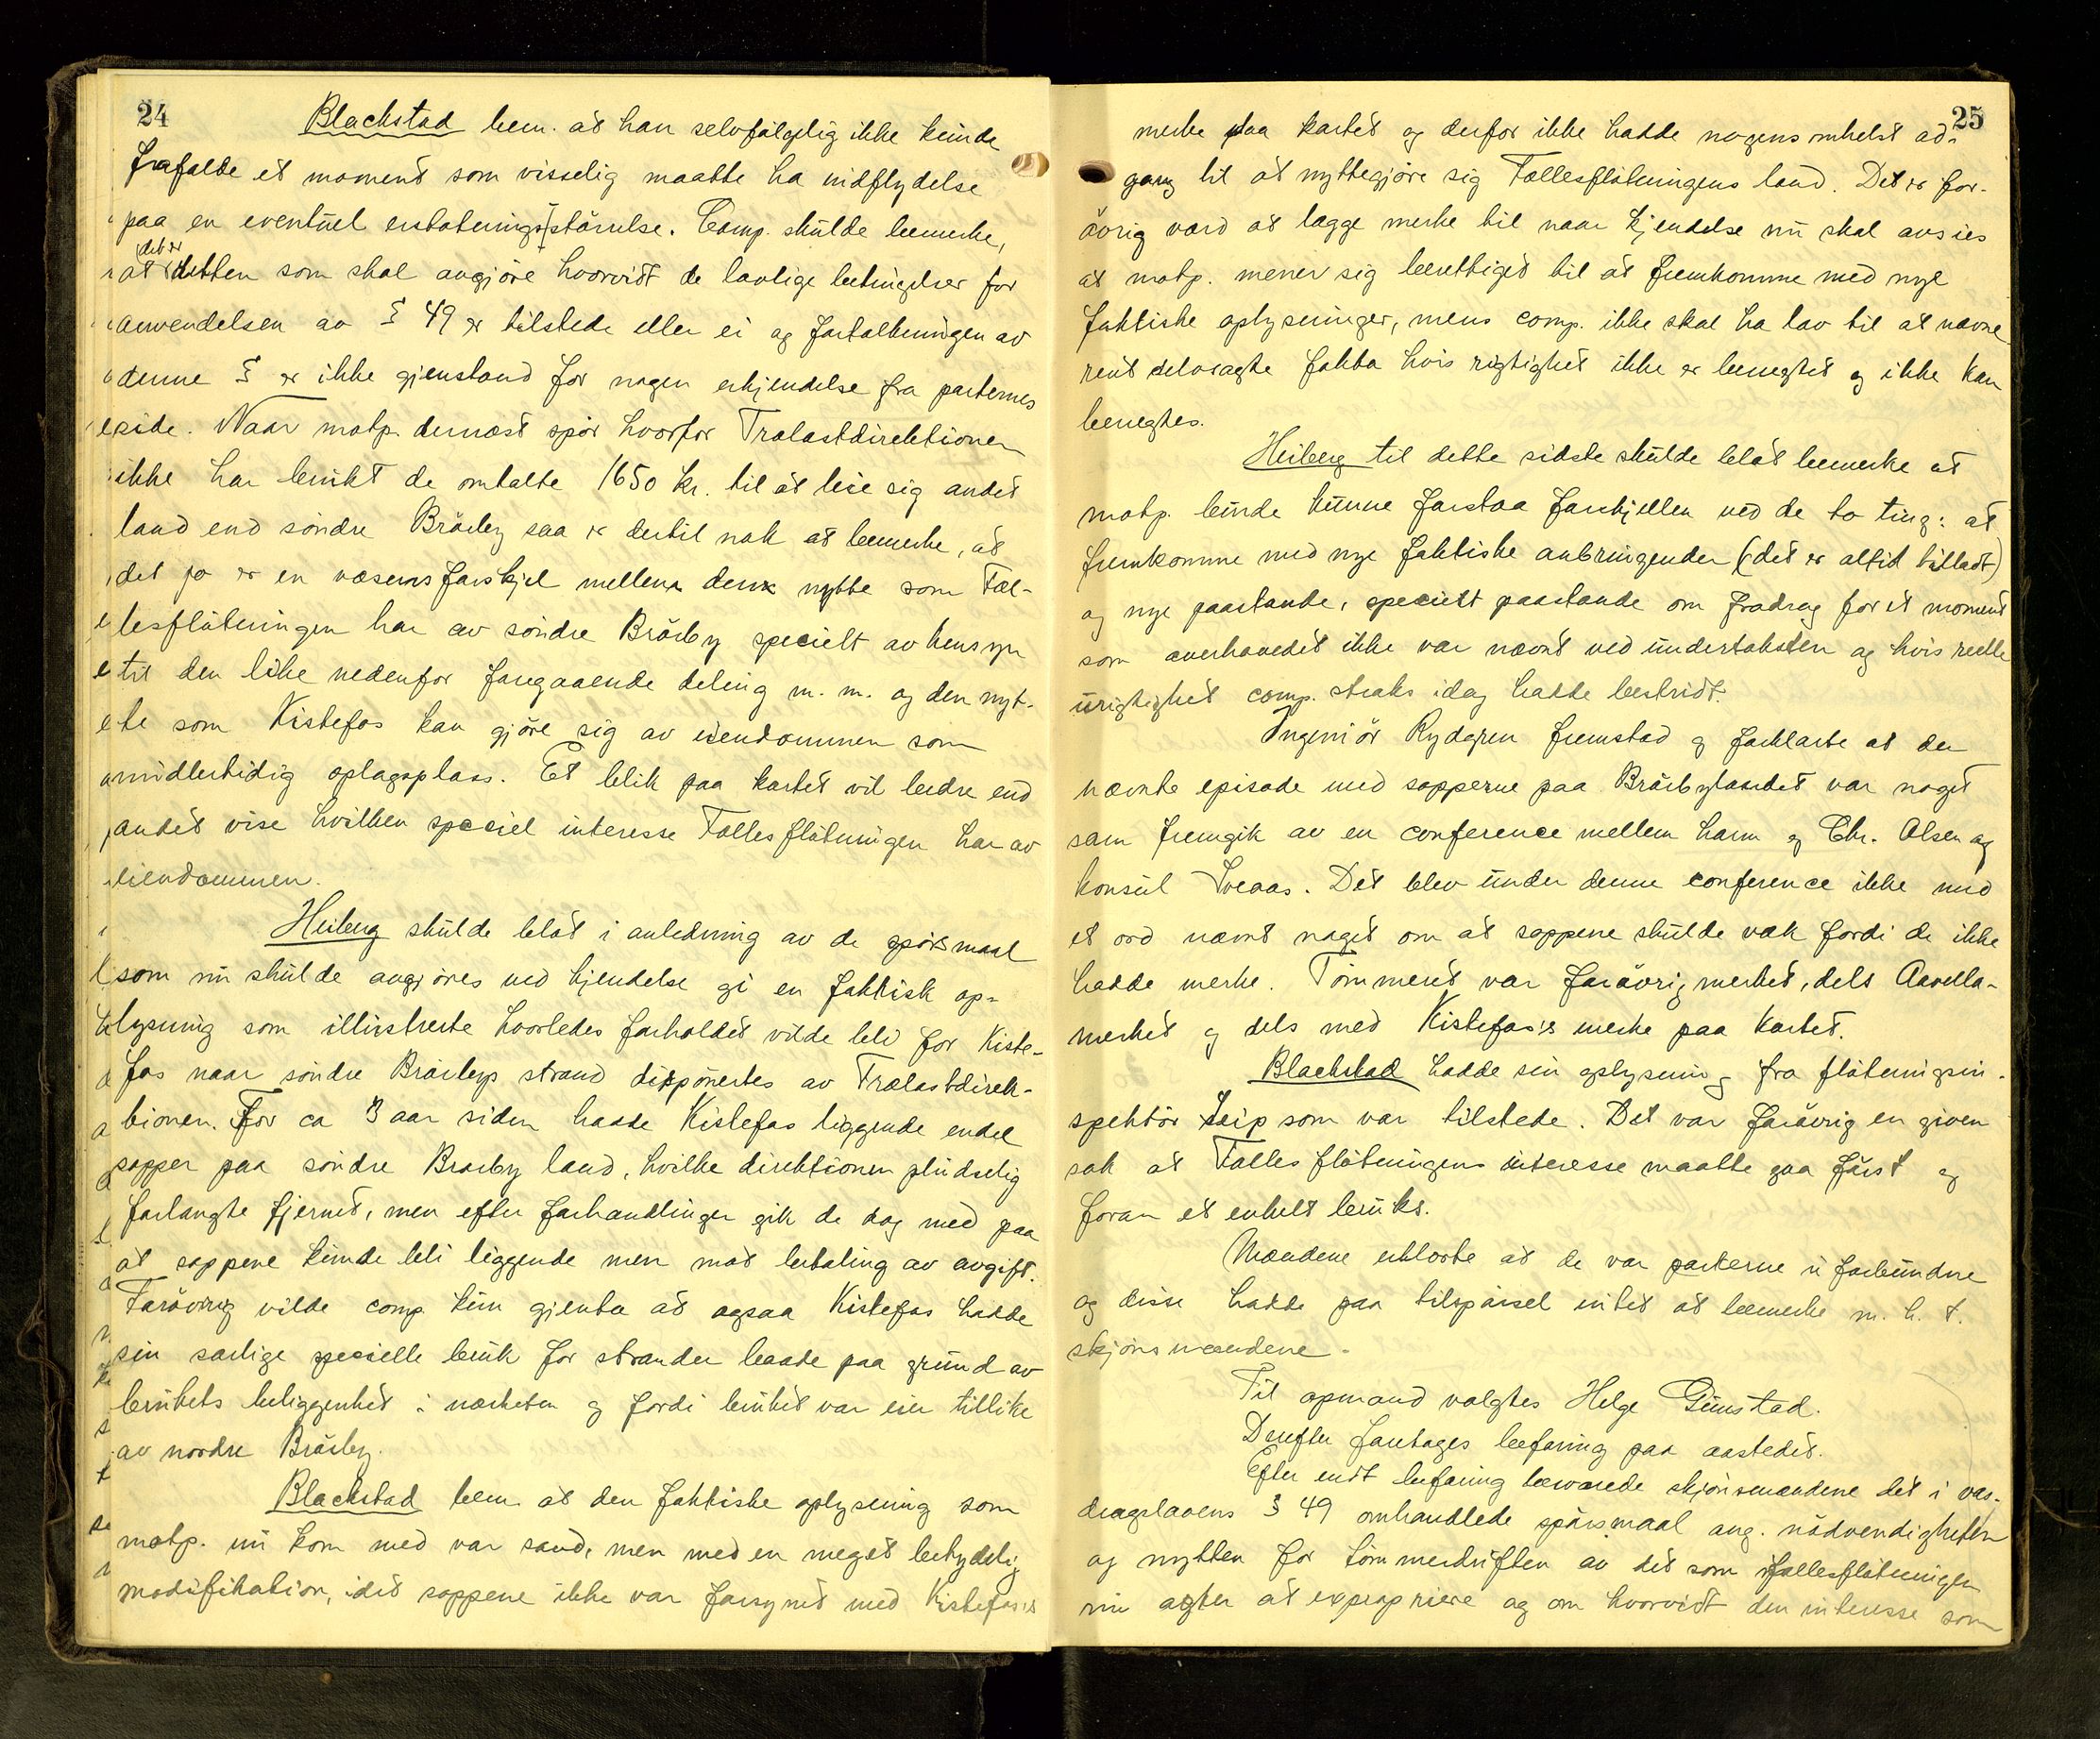 24
Blackstad bem. at han selvfølgelig ikke kunde
frafalde et moment som visselig maatte ha indflydelse
paa en eventuel erstatnings størrelse. Comp. skulde bemerke,
det er
at retten som skal avgjøre hvorvidt de lovlige betingelser for
anvendelsen av § 49 er tilstede eller ei og fortolkningen av
denne § er ikke gjenstand for nogen erkjendelse fra parternes
side. Naar motp. dernæst spør hvorfor Trælastdirektionen
ikke har brukt de omtalte 1650 kr. til at leie sig andet
land end søndre Brårby saa er dertil nok at bemerke, at
det jo er en væsensforskjel mellem den nytte som Fæl-
lesfløtningen har av søndre Brårby specielt av hensyn
til den like nedenfor foregaaende deling m. m. og den nyt-
te som Kistefos kan gjøre sig av eiendommen som
midlertidig oplagsplass. Et blik paa kartet vil bedre end
andet vise hvilken speciel interesse Fællesfløtningen har av
eiendommen.
Heiberg skulde blot i anledning av de spørsmaal
som nu skulde avgjøres ved kjendelse gi en faktisk op-
lysning som illustrerte hvorledes forholdet vilde bli for Kiste-
fos naar søndre Brårbys strand disponertes av Trælastdirek-
tionen. For ca 3 aar siden hadde Kistefos liggende endel
sopper paa søndre Braarby land, hvilke direktionen pludselig
forlangte fjernet, men efter forhandlinger gik de dog med paa
at soppene kunde bli liggende men mot betaling av avgift.
Forøvrig vilde comp. kun gjenta at ogsaa Kistefos hadde
sin særlige specielle bruk for stranden baade paa grund av
brukets beliggenhet i nærheten og fordi bruket var eier tillike
av nordre Brårby.
Blackstad bem. at den faktiske oplysning som
motp. nu kom med var sand, men med en meget betydelig
modifikation, idet soppene ikke var forsynet med Kistefos's
25
merke paa kartet og derfor ikke hadde nogensomhelst ad-
gang til at nyttegjøre sig Fællesfløtningens land. Det er for-
øvrig værd at lægge merke til naar kjendelse nu skal avsies
at motp. mener sig berettiget til at fremkomme med nye
faktiske oplysninger, mens comp. ikke skal ha lov til at nævne
rent fakta hvis rigtighet ikke er benegtet og ikke kan
benegtes.
Heiberg til dette sidste skulde blot bemerke at
motp. burde kunne forstaa forskjellen ved de to ting: at
fremkomme med nye faktiske anbringender (det er altid tilladt)
og nye paastande, specielt paastande om fradrag for et moment
som overhovedet ikke var nævnt ved undertaksten og hvis reelle
urigtighet comp. straks idag hadde bestridt.
Ingeniør Rydgren fremstod og forklarte at den
nævnte episode med sopperne paa Brårbylandet var noget
som fremgik av en conference mellem ham og Chr. Olsen og
konsul Sveaas. Det blev under denne conference ikke med
et ord nævnt noget om at soppene skulde væk fordi de ikke
hadde merke. Tømmeret var forøvrig merket, dels Aavella-
merket og dels med Kistefos's merke paa kartet.
Blackstad hadde sin oplysning fra fløtningsin-
spektør Seip som var tilstede. Det var forøvrig en given
sak at Fællesfløtningens interesse maatte gaa først og
foran et enkelt bruks.
Mændene erklærte at de var parterne uforbundne
og disse hadde paa tilspørsel intet at bemerke m. h. t.
skjønsmændene.
Til opmand valgtes Helge Gunstad.
Derefter foretages befaring paa aastedet.
Efter endt befaring besvarede skjønsmændene det i vas-
dragslovens § 49 omhandlede spørsmaal ang. nødvendigheten
og nytten for tømmerdriften av det som fællesfløtningen
nu agter at expropriere og om hvorvidt den interesse som